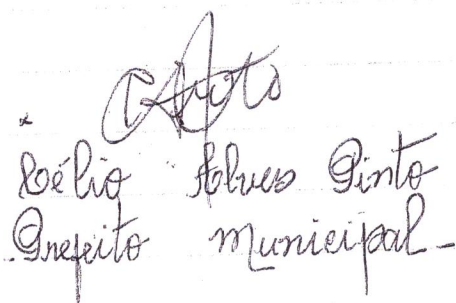 Célio Alves Pinto
Prefeito Municipal-